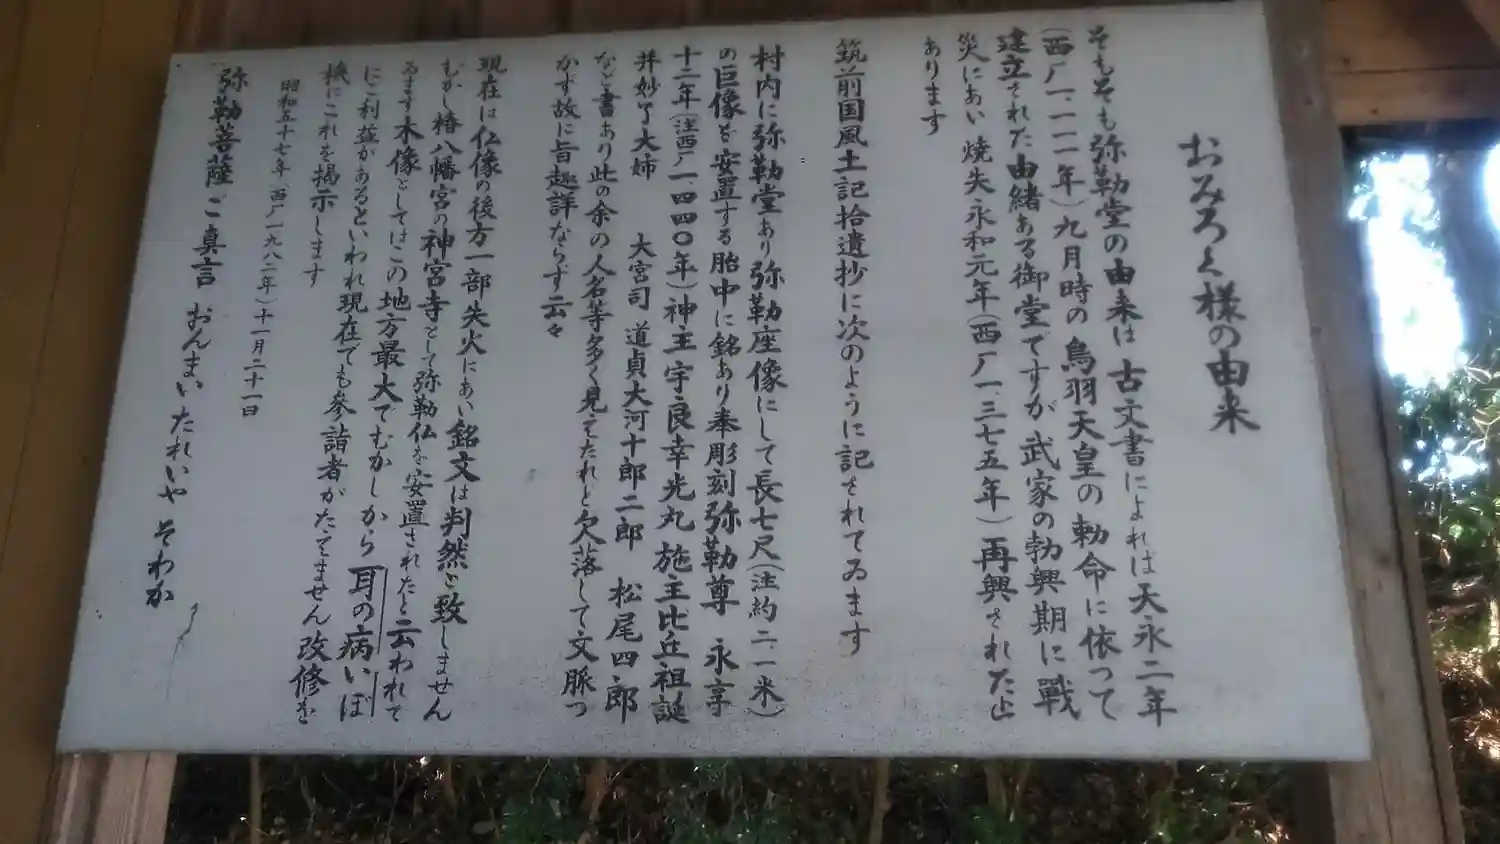 おみろく様の由来
そもそも弥勒堂の由来は古文書によれば天永二年
(西暦一、一一一年)九月時の鳥羽天皇の勅命に依つて
建立された由緒ある御堂ですが武家の勃興期に戰
災にあい焼失永和元年(西暦一、三七五年)再興された止
あります
筑前国風土記拾遺抄に次のように記されてゐます
村内に弥勒堂あり弥勒座像にして長七尺(注約二、一米)
の巨像を安置する胎中に銘あり奉彫刻弥勒尊 永享
十二年(注西暦一、四四〇年)神主宇良幸光丸施主比丘祖誕
并妙了大姉 大宮司 道貞大河十郎二郎 松尾四郎
など書あり此の余の人名等多く見えたれど欠落して文脈つ
かず故に旨趣詳ならず云々
現在は仏像の後方一部失火にあい銘文は判然と致しません
むかし椿八幡宮の神宮寺として弥勒仏を安置されたと云われて
ゐます木像としてはこの地方最大でむかしから耳の病いぼ
にご利益があるといわれ現在でも参詣者がたえません改修を
機にこれを掲示します
昭和五十七年(西暦一九八二年)十一月二十一日
弥勒菩薩ご真言 おんまい たれいや そわか